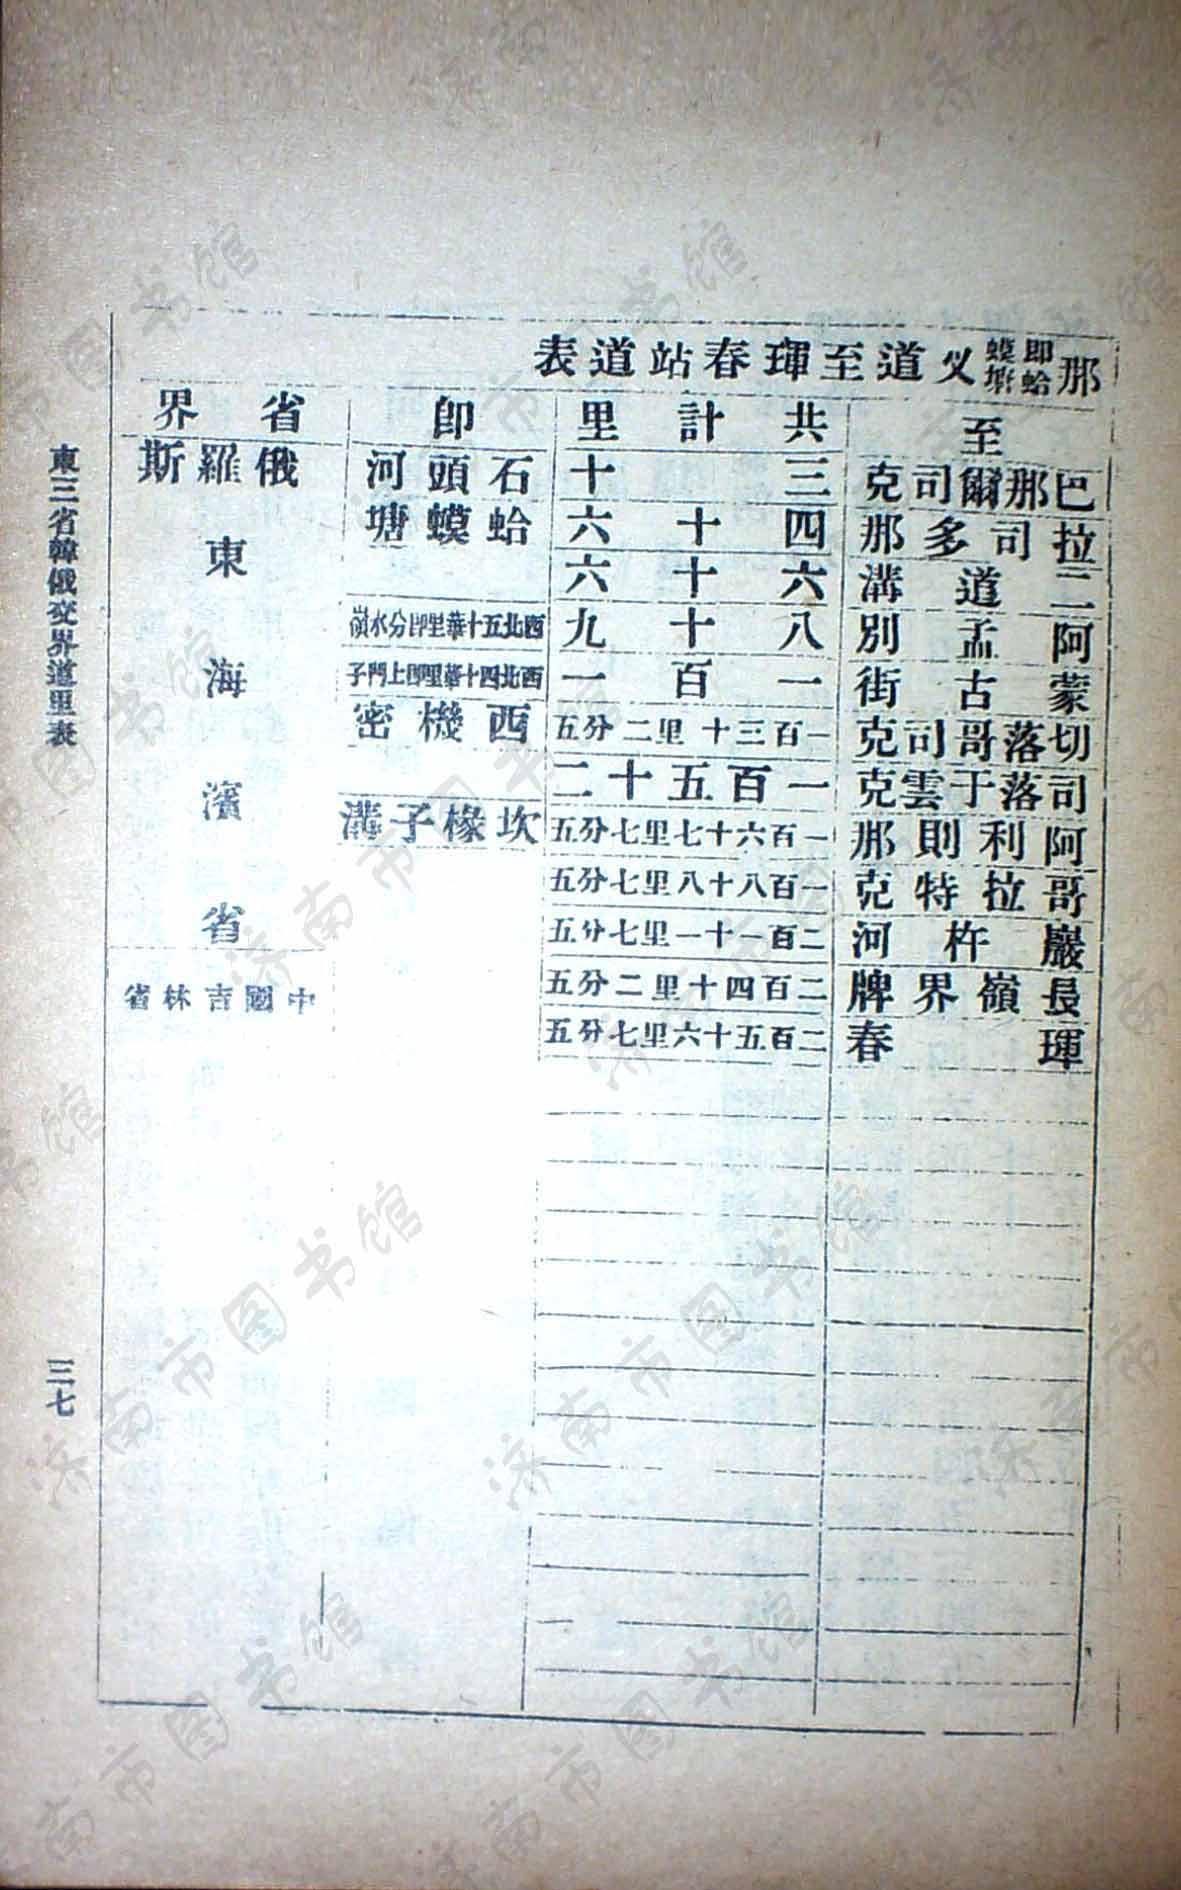 那即蛤蟆塘义道至琿春站道表
至 共計里 卽 省界
巴那爾司克 三十 石頭河 俄羅斯
拉司多那 四十六 蛤蟆塘
二道溝 六十六 東
阿孟別 八十九 西北五十華里卽分水嶺
蒙古街 一百一 西北四十華里卽上門子 海
切落哥司克 一百三十里二分五 西機密
司落于雲克 一百五十二 濱
阿利則那 一百六十七里七分五 坎椽子溝
哥拉特克 一百八十八里七分五
巖杵河 二百一十一里七分五 省
長嶺界牌 二百四十里二分五 中國吉林省
琿春 二百五十六里七分五
東三省韓俄交界道里表
三七
济南市图书馆